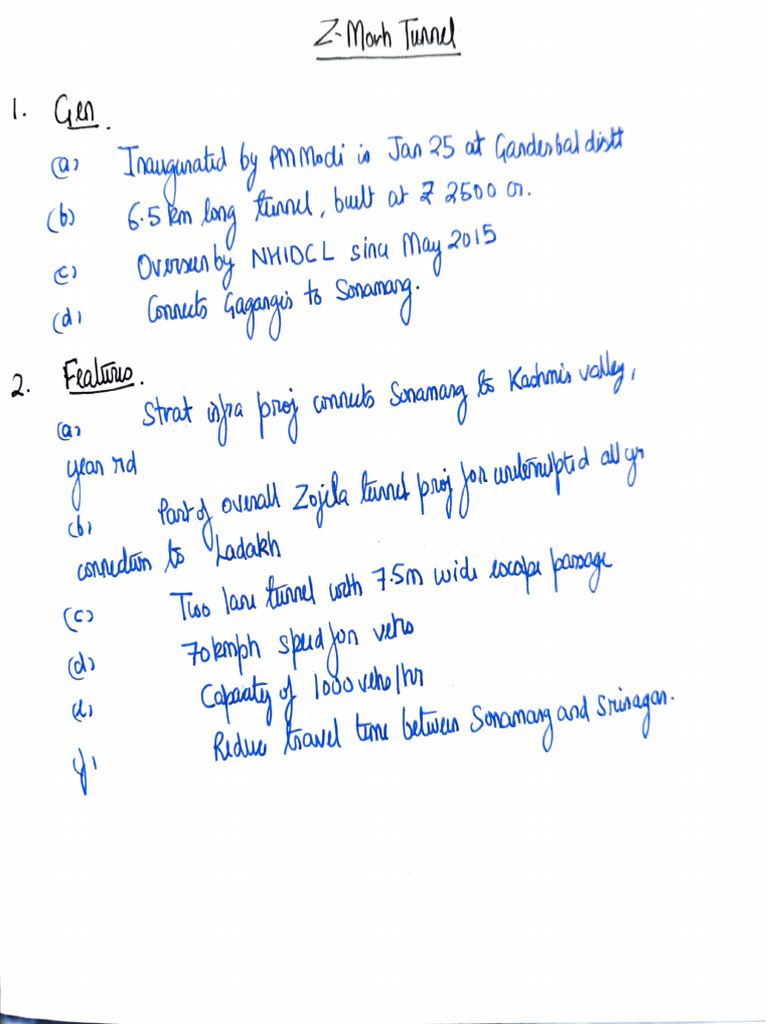 Z-Morh Tunnel
1. Gen.
(a) Inaugurated by PM Modi in Jan 25 at Ganderbal distt
(b) 6.5 km long tunnel, built at ₹ 2500 cr.
(c) Overseen by NHIDCL since May 2015
(d) Connects Gagangir to Sonamarg.
2. Features.
(a) Strat infra proj connects Sonamarg to Kashmir valley,
year rd
(b) Part of overall Zojila tunnel proj for uninterrupted all yr
connection to Ladakh
(c) Two lane tunnel with 7.5m wide escape passage
(d) 70kmph speed for vehs
(e) Capacity of 1000 vehs/hr
(f) Reduce travel time between Sonamarg and Srinagar.